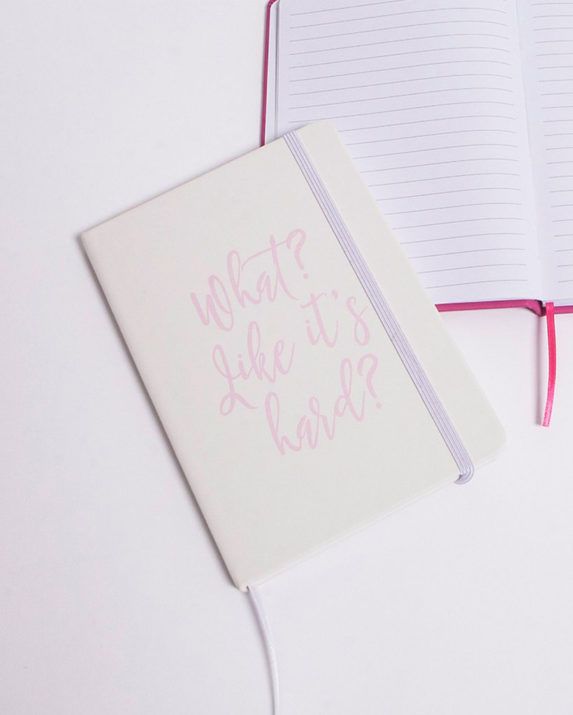 What?
Like it's
hard?